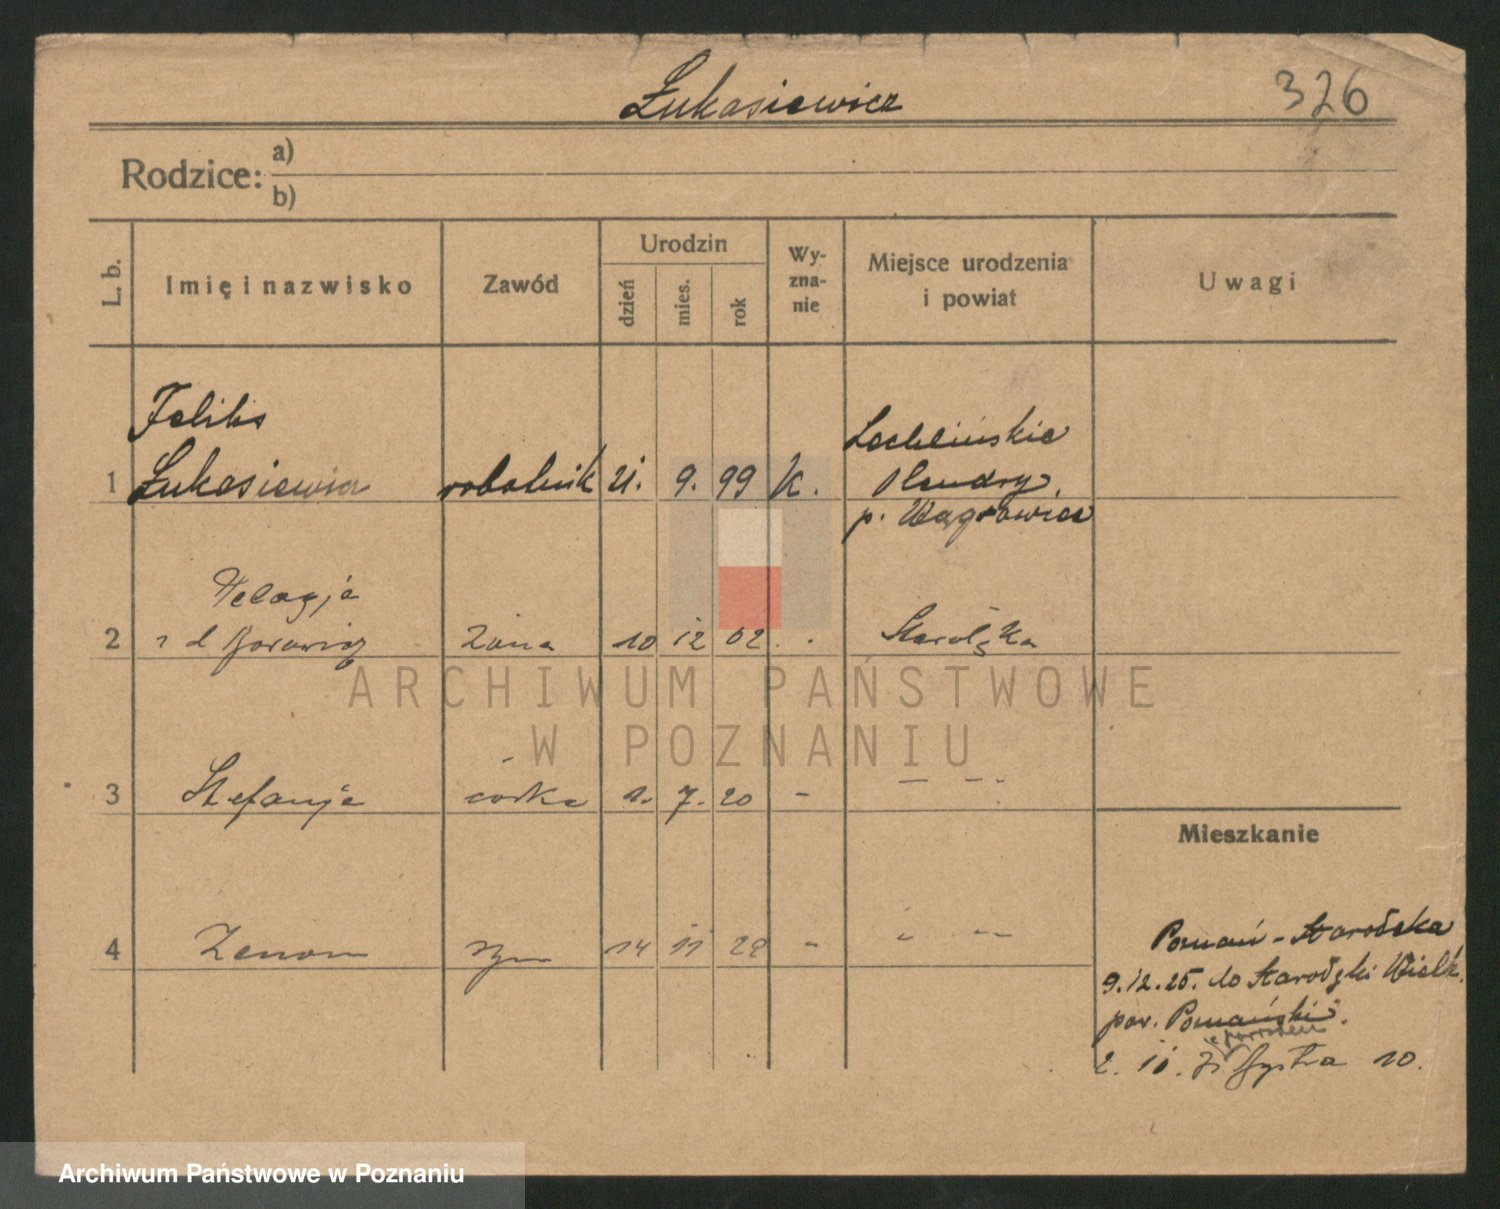 Łukasiewicz
326
Rodzice: a)
b)
L. b. Imię i nazwisko Zawód Urodzin dzień mies. rok Wy-zna-nie Miejsce urodzenia i powiat Uwagi
Feliks
Lechlińskie
1 Łukasiewicz robotnik 21. 9. 99 k. Olendry,
p. Wągrowiec
Pelagja
2 z d żona 10 12 02 Starołęka
3 Stefanja córka 1. 7. 20 -
Mieszkanie
4 Zenon syn 14 11 28 -
Poznań - Starołęka
9.12.25. do Starołęki Wielk.
pow. Poznański.
z powrotem
2. 11. Bystra 10.
ARCHIWUM PAŃSTWOWE
W POZNANIU
Archiwum Państwowe w Poznaniu